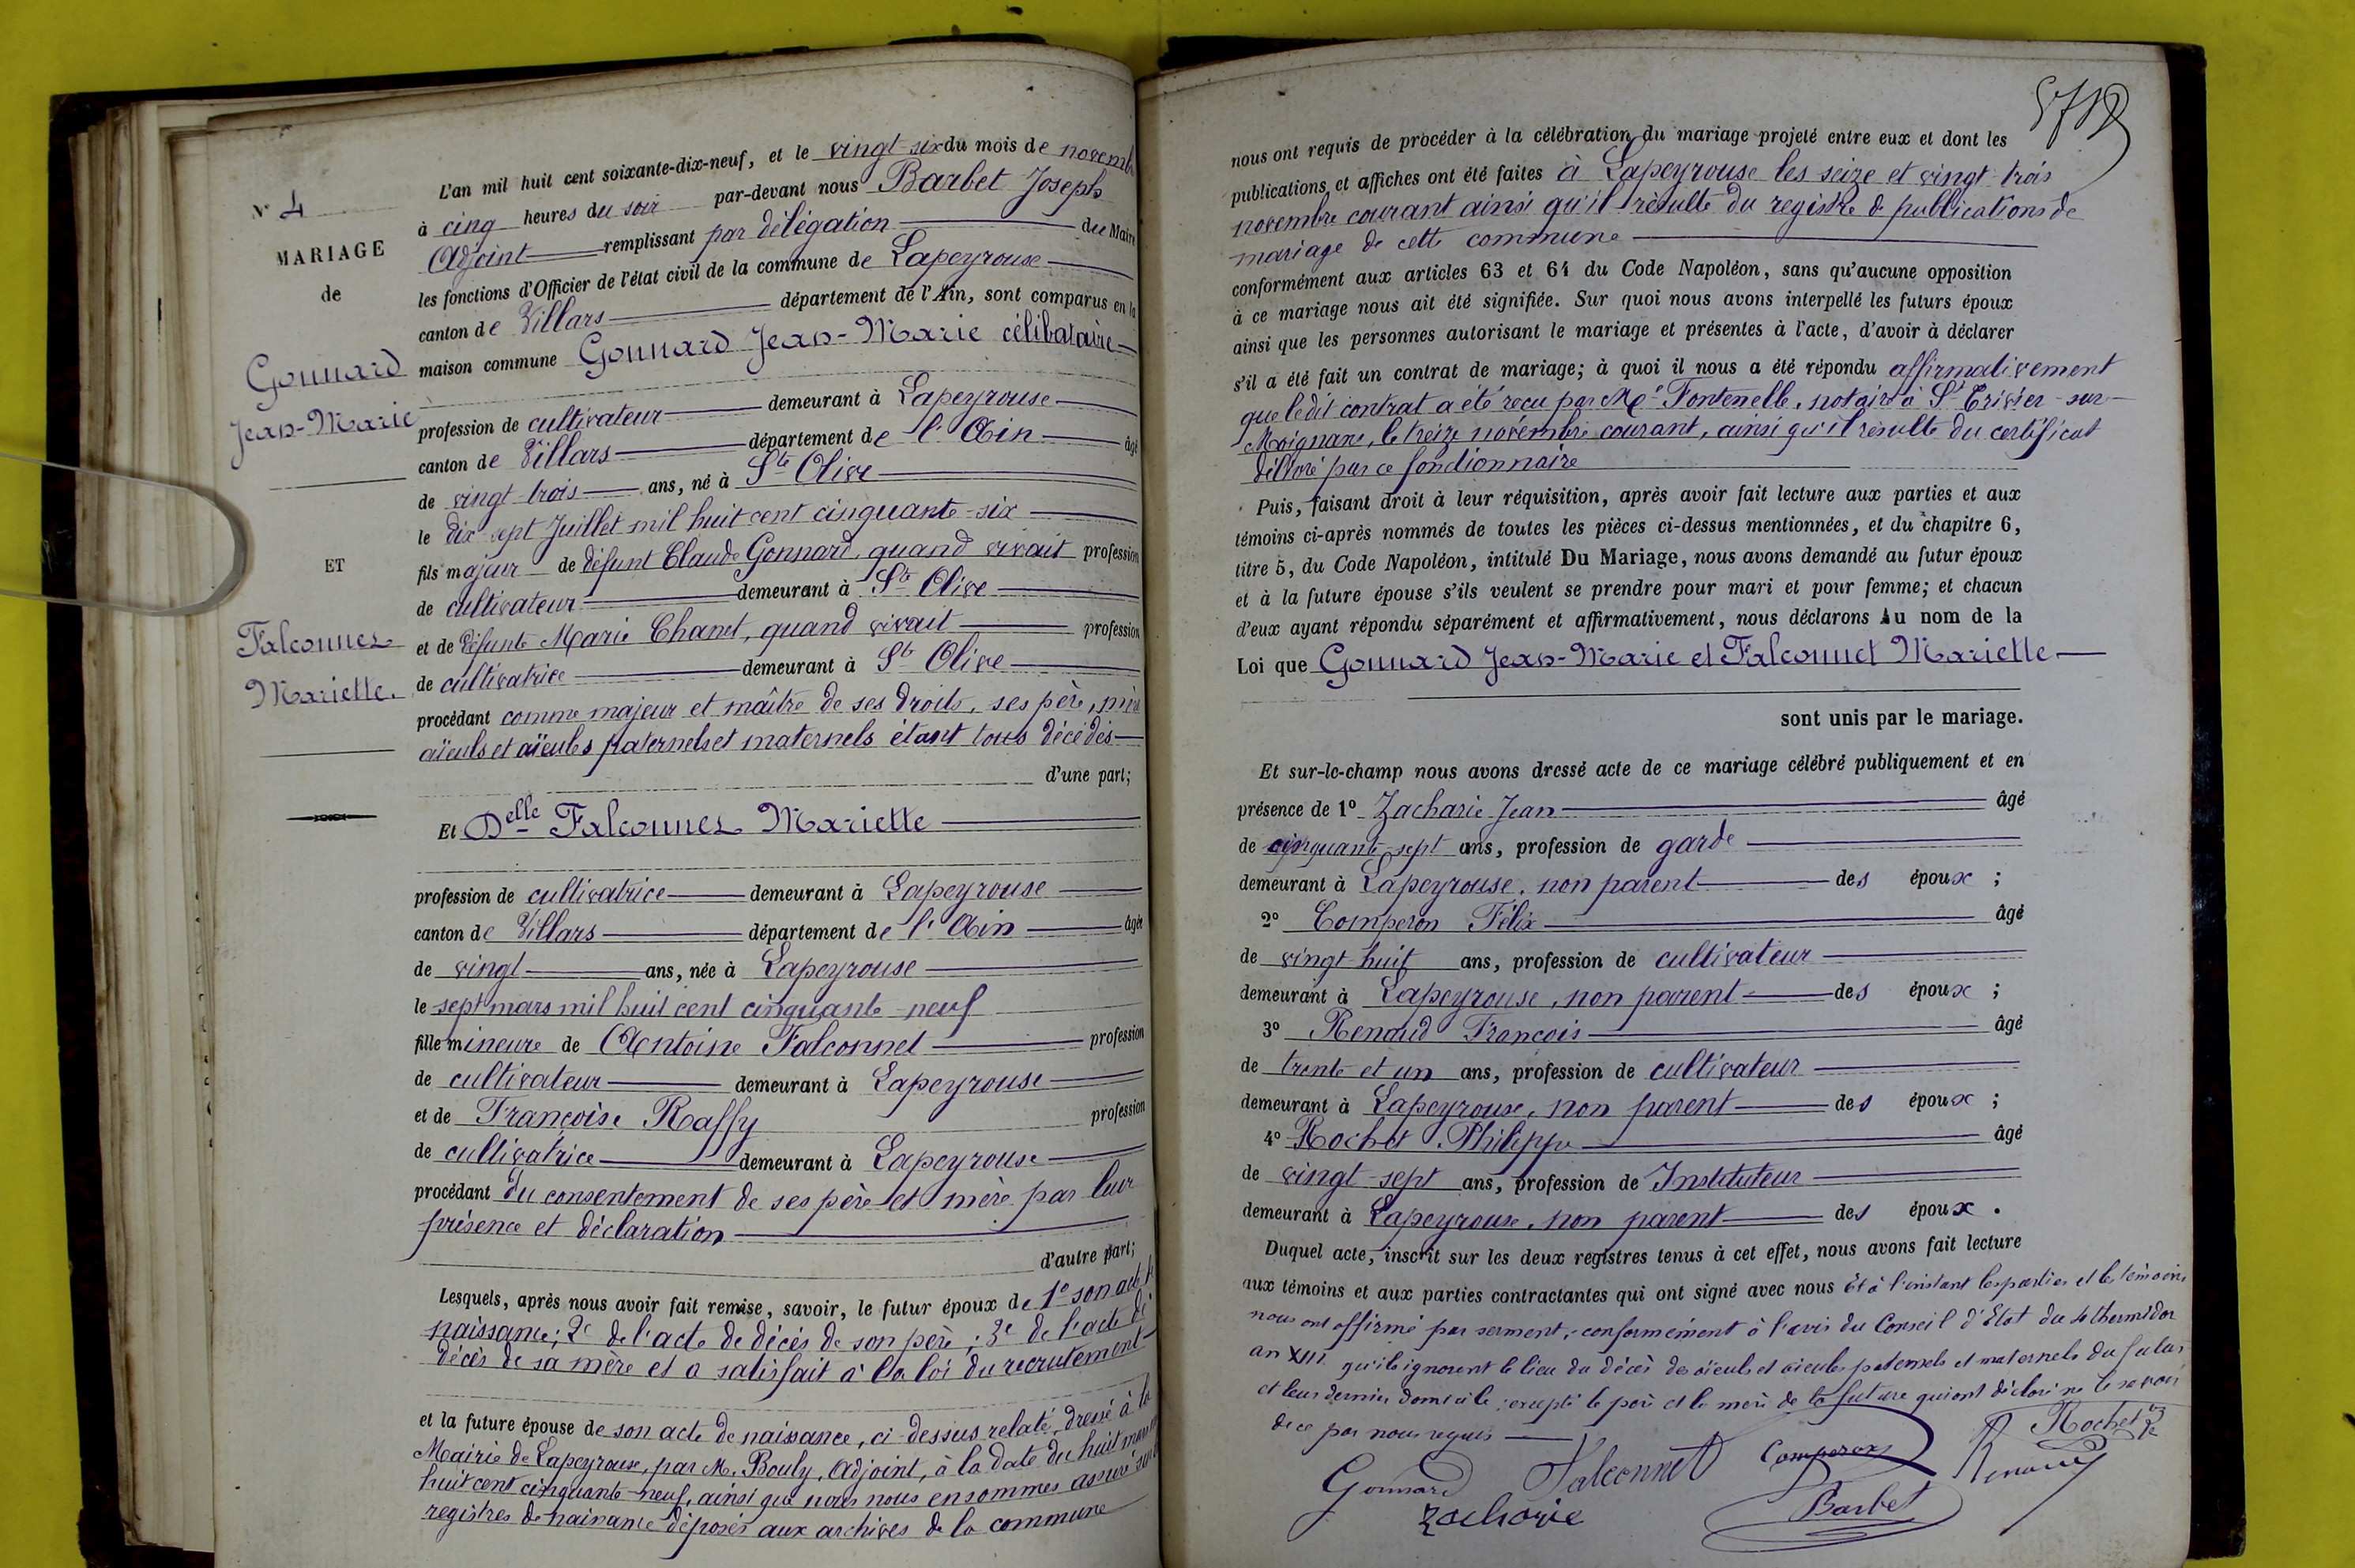 N° 4
MARIAGE
de
Gonnard
Jean-Marie
ET
Falconnet
Mariette.
L'an mil huit cent soixante-dix-neuf, et le vingt-six du mois de novemb
à cinq heures du soir par-devant nous Barbet Joseph
Adjoint remplissant par délégation du Maire
les fonctions d'Officier de l'état civil de la commune de Lapeyrouse
canton de Villars département de l'Ain, sont comparus en la
maison commune Gonnard Jean-Marie célibataire
profession de cultivateur demeurant à Lapeyrouse
canton de Villars département de l'Ain âgé
de vingt trois ans, né à Ste Olive
le dix sept Juillet mil huit cent cinquante-six
fils majeur de défunt Claude Gonnard, quand vivait profession
de cultivateur demeurant à Ste Olive
et de défunte Marie Chanel, quand vivait profession
de cultivatrice demeurant à Ste Olive
procédant comme majeur et maître de ses droits, ses père, mère
aïeuls et aïeules paternels et maternels étant tous décédés
d'une part;
Et Delle Falconnet Mariette
profession de cultivatrice demeurant à Lapeyrouse
canton de Villars département de l'Ain âgée
de vingt ans, née à Lapeyrouse
le sept mars mil huit cent cinquante-neuf
fille mineure de Antoine Falconnet profession
de cultivateur demeurant à Lapeyrouse
et de Françoise Raffy profession
de cultivatrice demeurant à Lapeyrouse
procédant du consentement de ses père et mère par leur
présence et déclaration
d'autre part;
Lesquels, après nous avoir fait remise, savoir, le futur époux de 1° son acte de
naissance; 2° de l'acte de décès de son père; 3° de l'acte de
décès de sa mère et a satisfait à la loi du recrutement
et la future épouse de son acte de naissance, ci-dessus relaté, dressé à la
Mairie de Lapeyrouse, par M. Bouly, Adjoint, à la date du huit mars
huit cent cinquante-neuf, ainsi que nous nous en sommes assuré sur
registres de naissance déposés aux archives de la commune
nous ont requis de procéder à la célébration du mariage projeté entre eux et dont les
publications et affiches ont été faites à Lapeyrouse les seize et vingt trois
novembre courant ainsi qu'il résulte du registre de publications de
mariage de cette commune
conformément aux articles 63 et 64 du Code Napoléon, sans qu'aucune opposition
à ce mariage nous ait été signifiée. Sur quoi nous avons interpellé les futurs époux
ainsi que les personnes autorisant le mariage et présentes à l'acte, d'avoir à déclarer
s'il a été fait un contrat de mariage; à quoi il nous a été répondu affirmativement
que le dit contrat a été reçu par Me Fontenelle, notaire à St Trivier-sur-
Moignans, le treize novembre courant, ainsi qu'il résulte du certificat
délivré par ce fonctionnaire
Puis, faisant droit à leur réquisition, après avoir fait lecture aux parties et aux
témoins ci-après nommés de toutes les pièces ci-dessus mentionnées, et du chapitre 6,
titre 5, du Code Napoléon, intitulé Du Mariage, nous avons demandé au futur époux
et à la future épouse s'ils veulent se prendre pour mari et pour femme; et chacun
d'eux ayant répondu séparément et affirmativement, nous déclarons Au nom de la
Loi que Gonnard Jean-Marie et Falconnet Mariette
sont unis par le mariage.
Et sur-le-champ nous avons dressé acte de ce mariage célébré publiquement et en
présence de 1° Zacharie Jean âgé
de cinquante-sept ans, profession de garde
demeurant à Lapeyrouse, non parent des époux ;
2° Comperon Félix âgé
de vingt huit ans, profession de cultivateur
demeurant à Lapeyrouse, non parent des époux ;
3° Renaud François âgé
de trente et un ans, profession de cultivateur
demeurant à Lapeyrouse, non parent des époux ;
4° Rochet Philippe âgé
de vingt-sept ans, profession de Instituteur
demeurant à Lapeyrouse, non parent des époux .
Duquel acte, inscrit sur les deux registres tenus à cet effet, nous avons fait lecture
aux témoins et aux parties contractantes qui ont signé avec nous Et à l'instant les parties et les témoins
nous ont affirmé par serment, conformément à l'avis du Conseil d'Etat du 4 thermidor
an XIII qu'ils ignorent le lieu du décès des aïeuls et aïeules paternels et maternels du futur
et leur dernier domicile; excepté le père et la mère de la future qui ont déclaré ne le savoir
de ce par nous requis
Gonnard Falconnet Comperon Rochet
Renaud
Zacharie Barbet